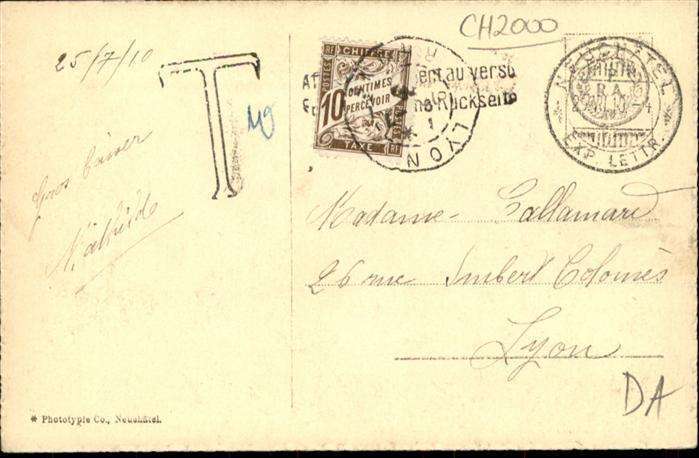 25/7/10
CH2000
T
10
CHIFFRE
CENTIMES
A PERCEVOIR
POSTES
RF
TAXE
RF
ent au verso
Rückseite
LYON
NEUCHÂTEL
EXP. LETTR.
Gros baiser
Mathilde
Madame Gallamard
26 rue Imbert Colomès
Lyon
DA
* Phototypie Co., Neuchâtel.